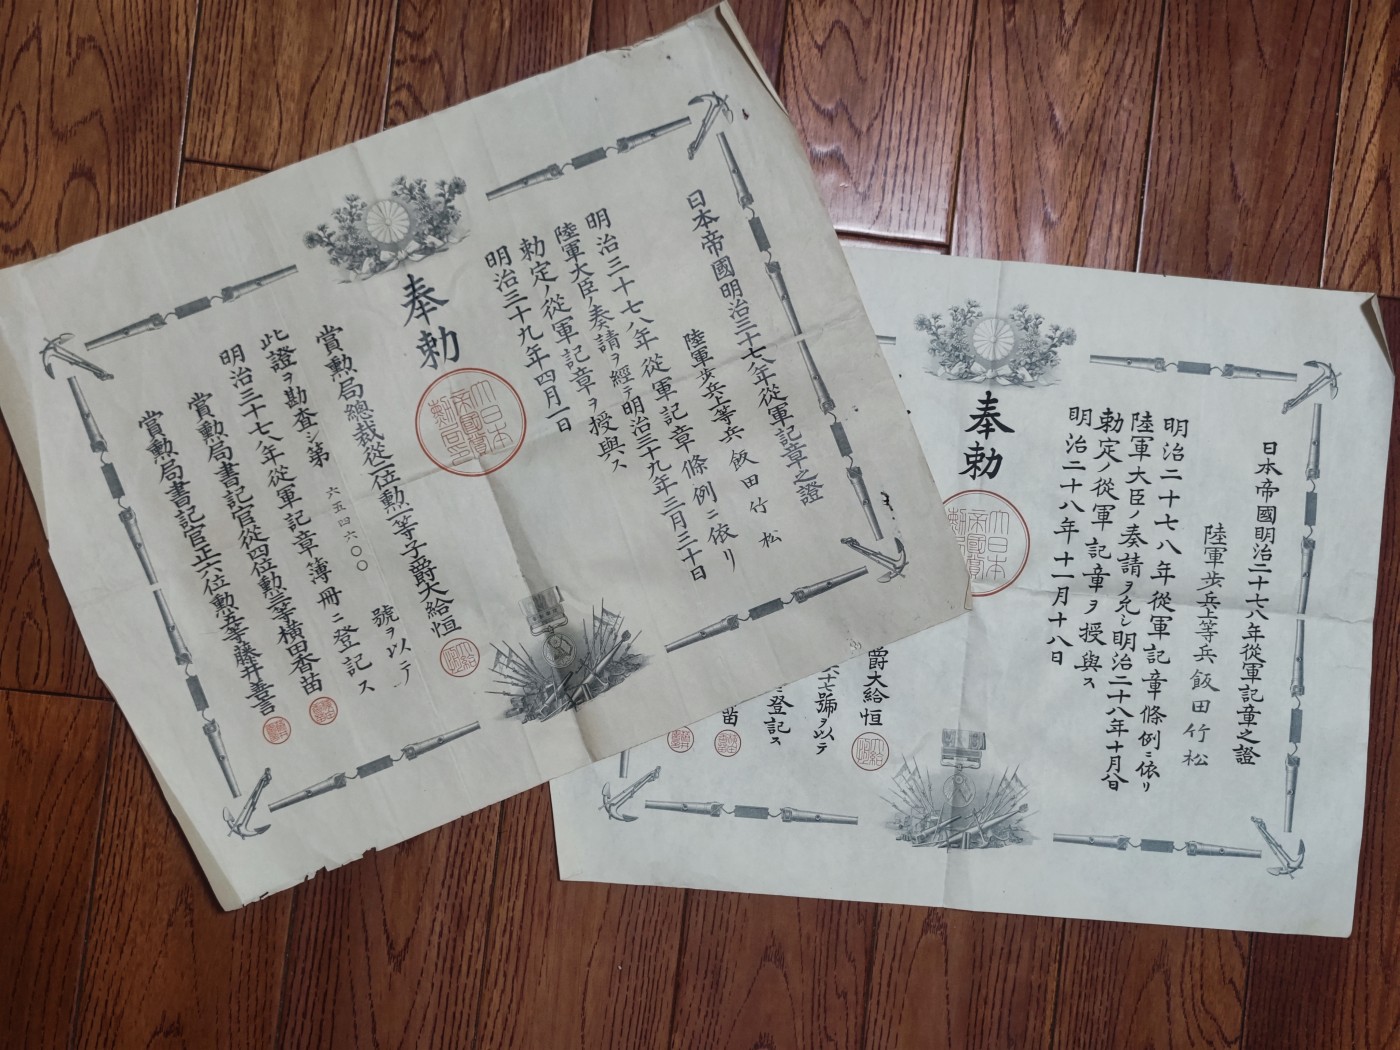 日本帝國明治三十七八年從軍記章之證
陸軍歩兵上等兵飯田竹松
明治三十七八年從軍記章條例ニ依リ
陸軍大臣ノ奏請ヲ經テ明治三十九年三月三十日
勅定ノ從軍記章ヲ授與ス
明治三十九年四月一日
奉勅
大日本帝國賞勳局印
賞勲局總裁從二位勲一等子爵大給恒
此證ヲ勘査シ第六五四六〇〇號ヲ以テ
明治三十七八年從軍記章簿冊ニ登記ス
賞勲局書記官從四位勲三等横田香苗
賞勲局書記官正六位勲五等藤井善言
日本帝國明治二十七八年從軍記章之證
陸軍歩兵上等兵飯田竹松
明治二十七八年從軍記章條例ニ依リ
陸軍大臣ノ奏請ヲ允シ明治二十八年十月八日
勅定ノ從軍記章ヲ授與ス
明治二十八年十一月十八日
奉勅
爵大給恒
七號ヲ以テ
ニ登記ス
苗